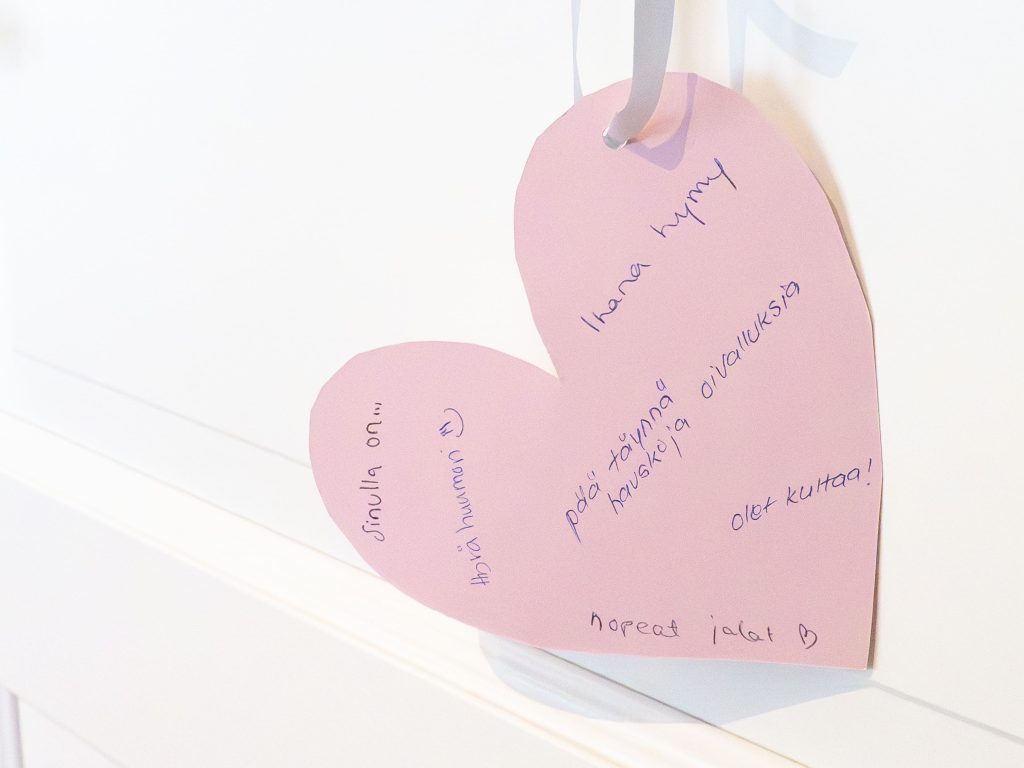 Sinulla on...
Hyvä huumori
Ihana hymy
pää täynnä
hauskoja oivalluksia
olet kultaa!
nopeat jalat